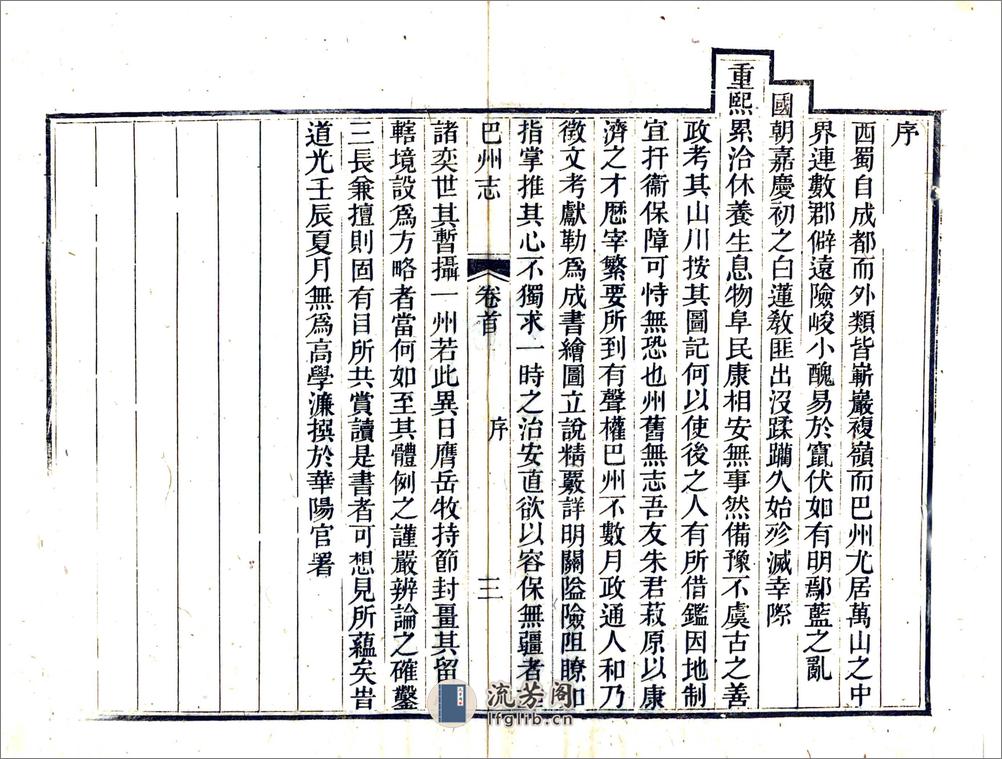 序
西蜀自成都而外類皆嶄巖複嶺而巴州尤居萬山之中
界連數郡僻遠險峻小醜易於竄伏如有明鄢藍之亂
國朝嘉慶初之白蓮敎匪出沒蹂躪久始殄滅幸際
重熙累洽休養生息物阜民康相安無事然備豫不虞古之善
政考其山川按其圖記何以使後之人有所借鑑因地制
宜扞衞保障可恃無恐也州舊無志吾友朱君菽原以康
濟之才歷宰繁要所到有聲權巴州不數月政通人和乃
徵文考獻勒爲成書繪圖立說精嚴詳明關隘險阻瞭如
指掌推其心不獨求一時之治安直欲以容保無疆者
巴州志
卷首
序
三
諸奕世其暫攝一州若此異日膺岳牧持節封畺其留
轄境設爲方略者當何如至其體例之謹嚴辨論之確鑿
三長兼擅則固有目所共賞讀是書者可想見所蘊矣旹
道光壬辰夏月無爲高學濂撰於華陽官署
流芳阁
lfglib.cn